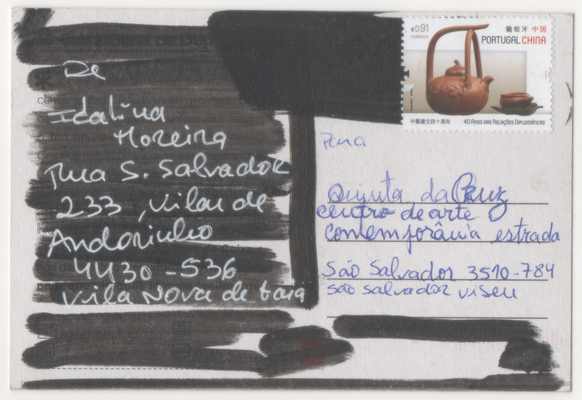 De
Idalina
Moreira
Rua S. Salvador
233, Vilar de
Andorinho
4430-536
Vila Nova de Gaia
€0,91
葡萄牙 中国
PORTUGAL CHINA
中葡建交四十周年
40 Anos das Relações Diplomáticas
Para
Quinta da Cruz
centro de arte
contemporânia estrada
São Salvador 3510-784
São Salvador Viseu